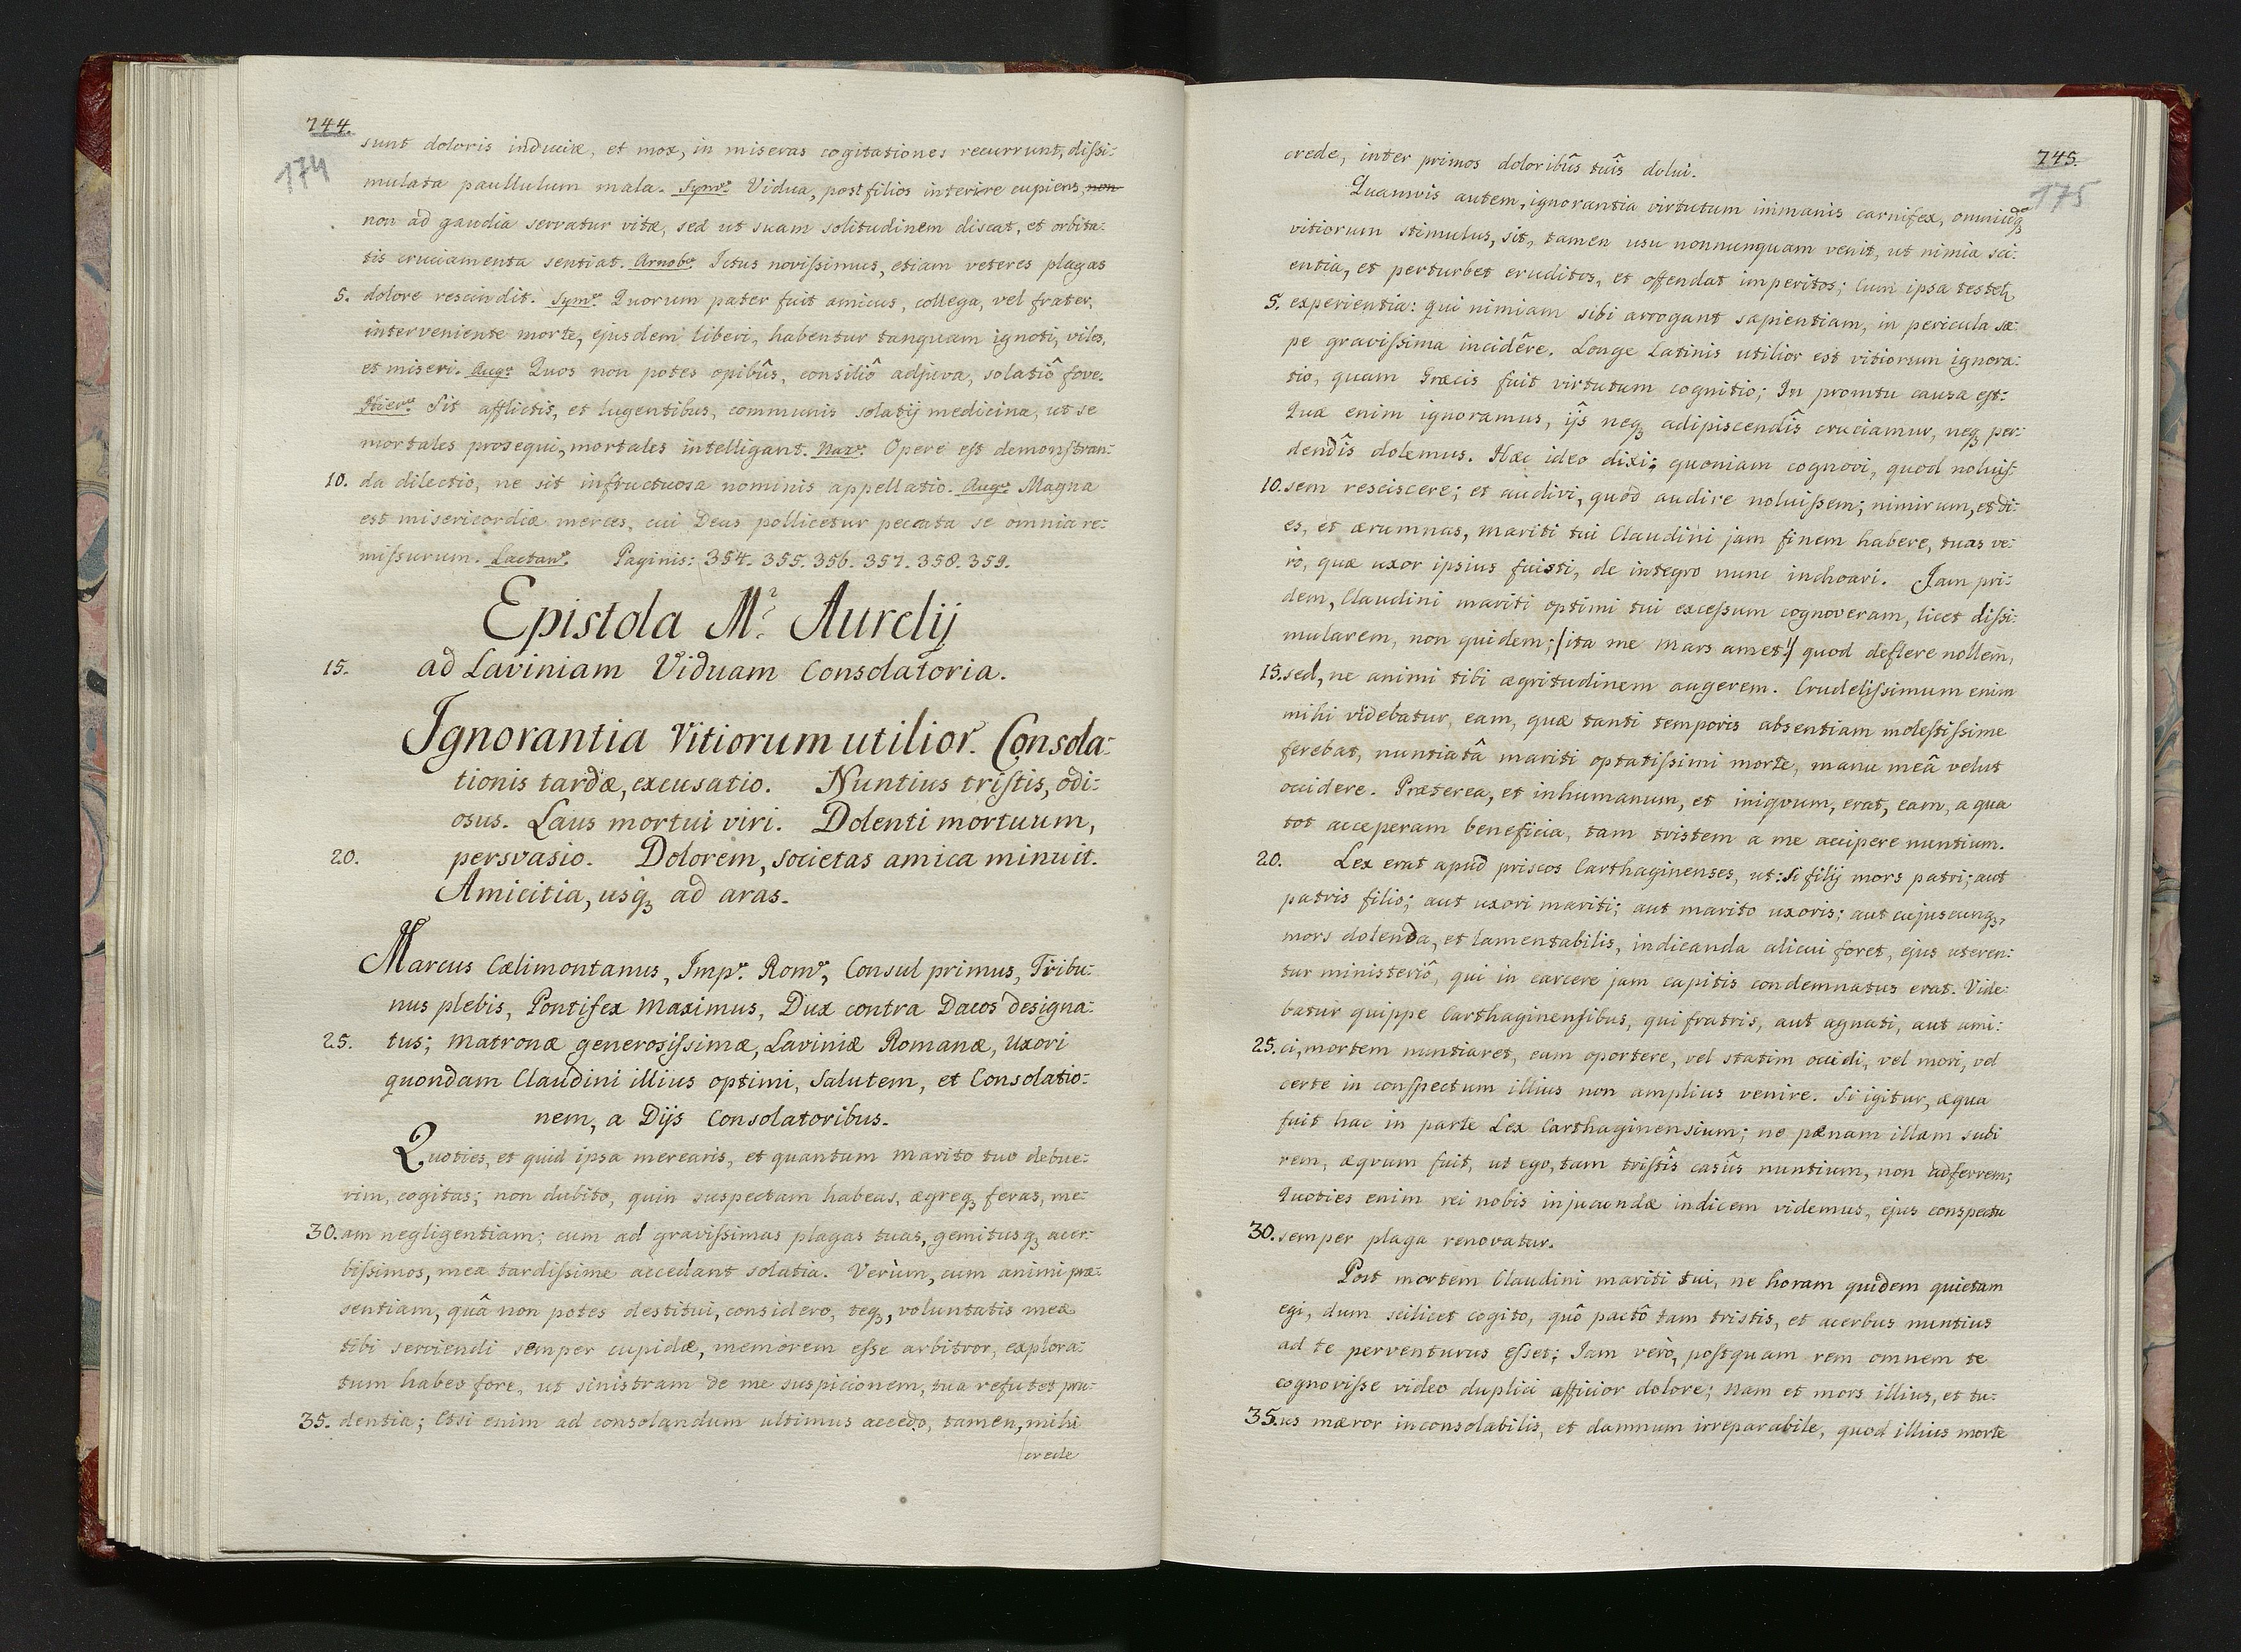 744.
174
sunt doloris induciæ, et mox, in miseras cogitationes recurrunt, dissi:
mulata paullulum mala. Symꝰ. Vidua, post filios interire cupiens, non
non ad gaudia servatur vitæ, sed ut suam solitudinem discat, et orbita:
tis cruciamenta sentiat. Arnobꝰ. Ictus novissimus, etiam veteres plagas
5. dolore rescindit. Symꝰ. Quorum pater fuit amicus, collega, vel frater,
interveniente morte, ejusdem liberi, habentur tanquam ignoti, viles,
et miseri. Augꝰ. Quos non potes opibûs, consiliô adjuva, solatiô fove.
Hierꝰ. Sit afflictis, et lugentibus, communis solatij medicina, ut se
mortales prosequi, mortales intelligant. Nazꝰ. Opere est demonstran:
10. da dilectio, ne sit infructuosa nominis appellatio. Augꝰ. Magna
est misericordiæ merces, cui Deus pollicetur peccata se omnia re:
missurum. Lactanꝰ. Paginis: 354. 355. 356. 357. 358. 359.
Epistola M? Aurelij
15. ad Laviniam Viduam Consolatoria.
Ignorantia Vitiorum utilior. Consola:
tionis tardæ, excusatio. Nuntius tristis, odi:
osus. Laus mortui viri. Dolenti mortuum,
20. persvasio. Dolorem, societas amica minuit.
Amicitia, usq̃ ad aras.
Marcus Cælimontanus, Impꝰ. Romꝰ, Consul primus, Tribu:
nus plebis, Pontifex Maximus, Dux contra Dacos designa:
25. tus; Matronæ generosissimæ, Laviniæ Romanæ, Uxori
quondam Claudini illius optimi, Salutem, et Consolatio:
nem, a Dijs Consolatoribus.
Quoties, et quid ipsa merearis, et quantum marito tuo debue:
rim, cogitas; non dubito, quin suspectam habeas, ægreq̃ feras, me:
30. am negligentiam; cum ad gravissimas plagas tuas, gemitusq̃ acer:
bissimos, mea tardissime accedant solatia. Verùm, cum animi præ:
sentiam, quâ non potes destitui, considero, teq̃, voluntatis meæ
tibi serviendi semper cupidæ, memorem esse arbitror, explora:
tum habeo fore, ut sinistram de me suspicionem, tua refutet pru:
35. dentia; Etsi enim ad consolandum ultimus accedo, tamen, mihi
crede
745.
175
crede, inter primos doloribûs tuîs dolui.
Quamvis autem, ignorantia virtutum immanis carnifex, omniũq̃
vitiorum stimulus, sit, tamen usu nonnunquam venit, ut nimia sci:
entia, et perturbet eruditos, et offendat imperitos; Cum ipsa testetꝶ
5. experientia: qui nimiam sibi arrogant sapientiam, in pericula sæ:
pe gravissima incidêre. Longe Latinis utilior est vitiorum ignora:
tio, quam Græcis fuit virtutum cognitio; In promtu causa est:
Quæ enim ignoramus, ijs neq̃ adipiscendîs cruciamur, neq̃ per:
dendîs dolemus. Hæc ideo dixi; quoniam cognovi, quod noluis:
10. sem resciscere; et audivi, quod audire noluissem; nimirum, et di:
es, et ærumnas, mariti tui Claudini jam finem habere, tuas ve:
rò, quæ uxor ipsius fuisti, de integro nunc inchoari. Jam pri:
dem, Claudini mariti optimi tui excessum cognoveram, licet dissi:
mularem, non quidem; (ita me Mars amet!) quod deflere nollem,
15. sed, ne animi tibi ægritudinem augerem. Crudelissimum enim
mihi videbatur, eam, quæ tanti temporis absentiam molestissime
ferebat, nuntiatâ mariti optatissimi morte, manu meâ velut
occidere. Præterea, et inhumanum, et iniqvum, erat, eam, a qua
tot acceperam beneficia, tam tristem a me accipere nuntium.
20. Lex erat apud priscos Carthaginenses, ut: Si filij mors patri; aut
patris filio; aut uxori mariti; aut marito uxoris; aut cujuscunq̃,
mors dolenda, et lamentabilis, indicanda alicui foret, ejus uteren:
tur ministeriô, qui in carcere jam capitis condemnatus erat. Vide:
batur quippe Carthaginensibus, qui fratris, aut agnati, aut ami:
25. ci, mortem nuntiaret, eum oportere, vel statim occidi, vel mori, vel
certe in conspectum illius non amplius venire. Si igitur, æqua
fuit hac in parte Lex Carthaginensium; ne pænam illam subi
rem, æqvum fuit, ut ego, tam tristîs casûs nuntium, non adferrem;
Quoties enim rei nobis injucundæ indicem videmus, ejus conspectu
30. semper plaga renovatur.
Post mortem Claudini mariti tui, ne horam quidem quietam
egi, dum scilicet cogito, quô pactô tam tristis, et acerbus nuntius
ad te perventurus esset; Iam verò, postquam rem omnem te
cognovisse video duplici afficior dolore; Nam et mors illius, et tu:
35. us mæror inconsolabilis, et damnum irreparabile, quod illius morte